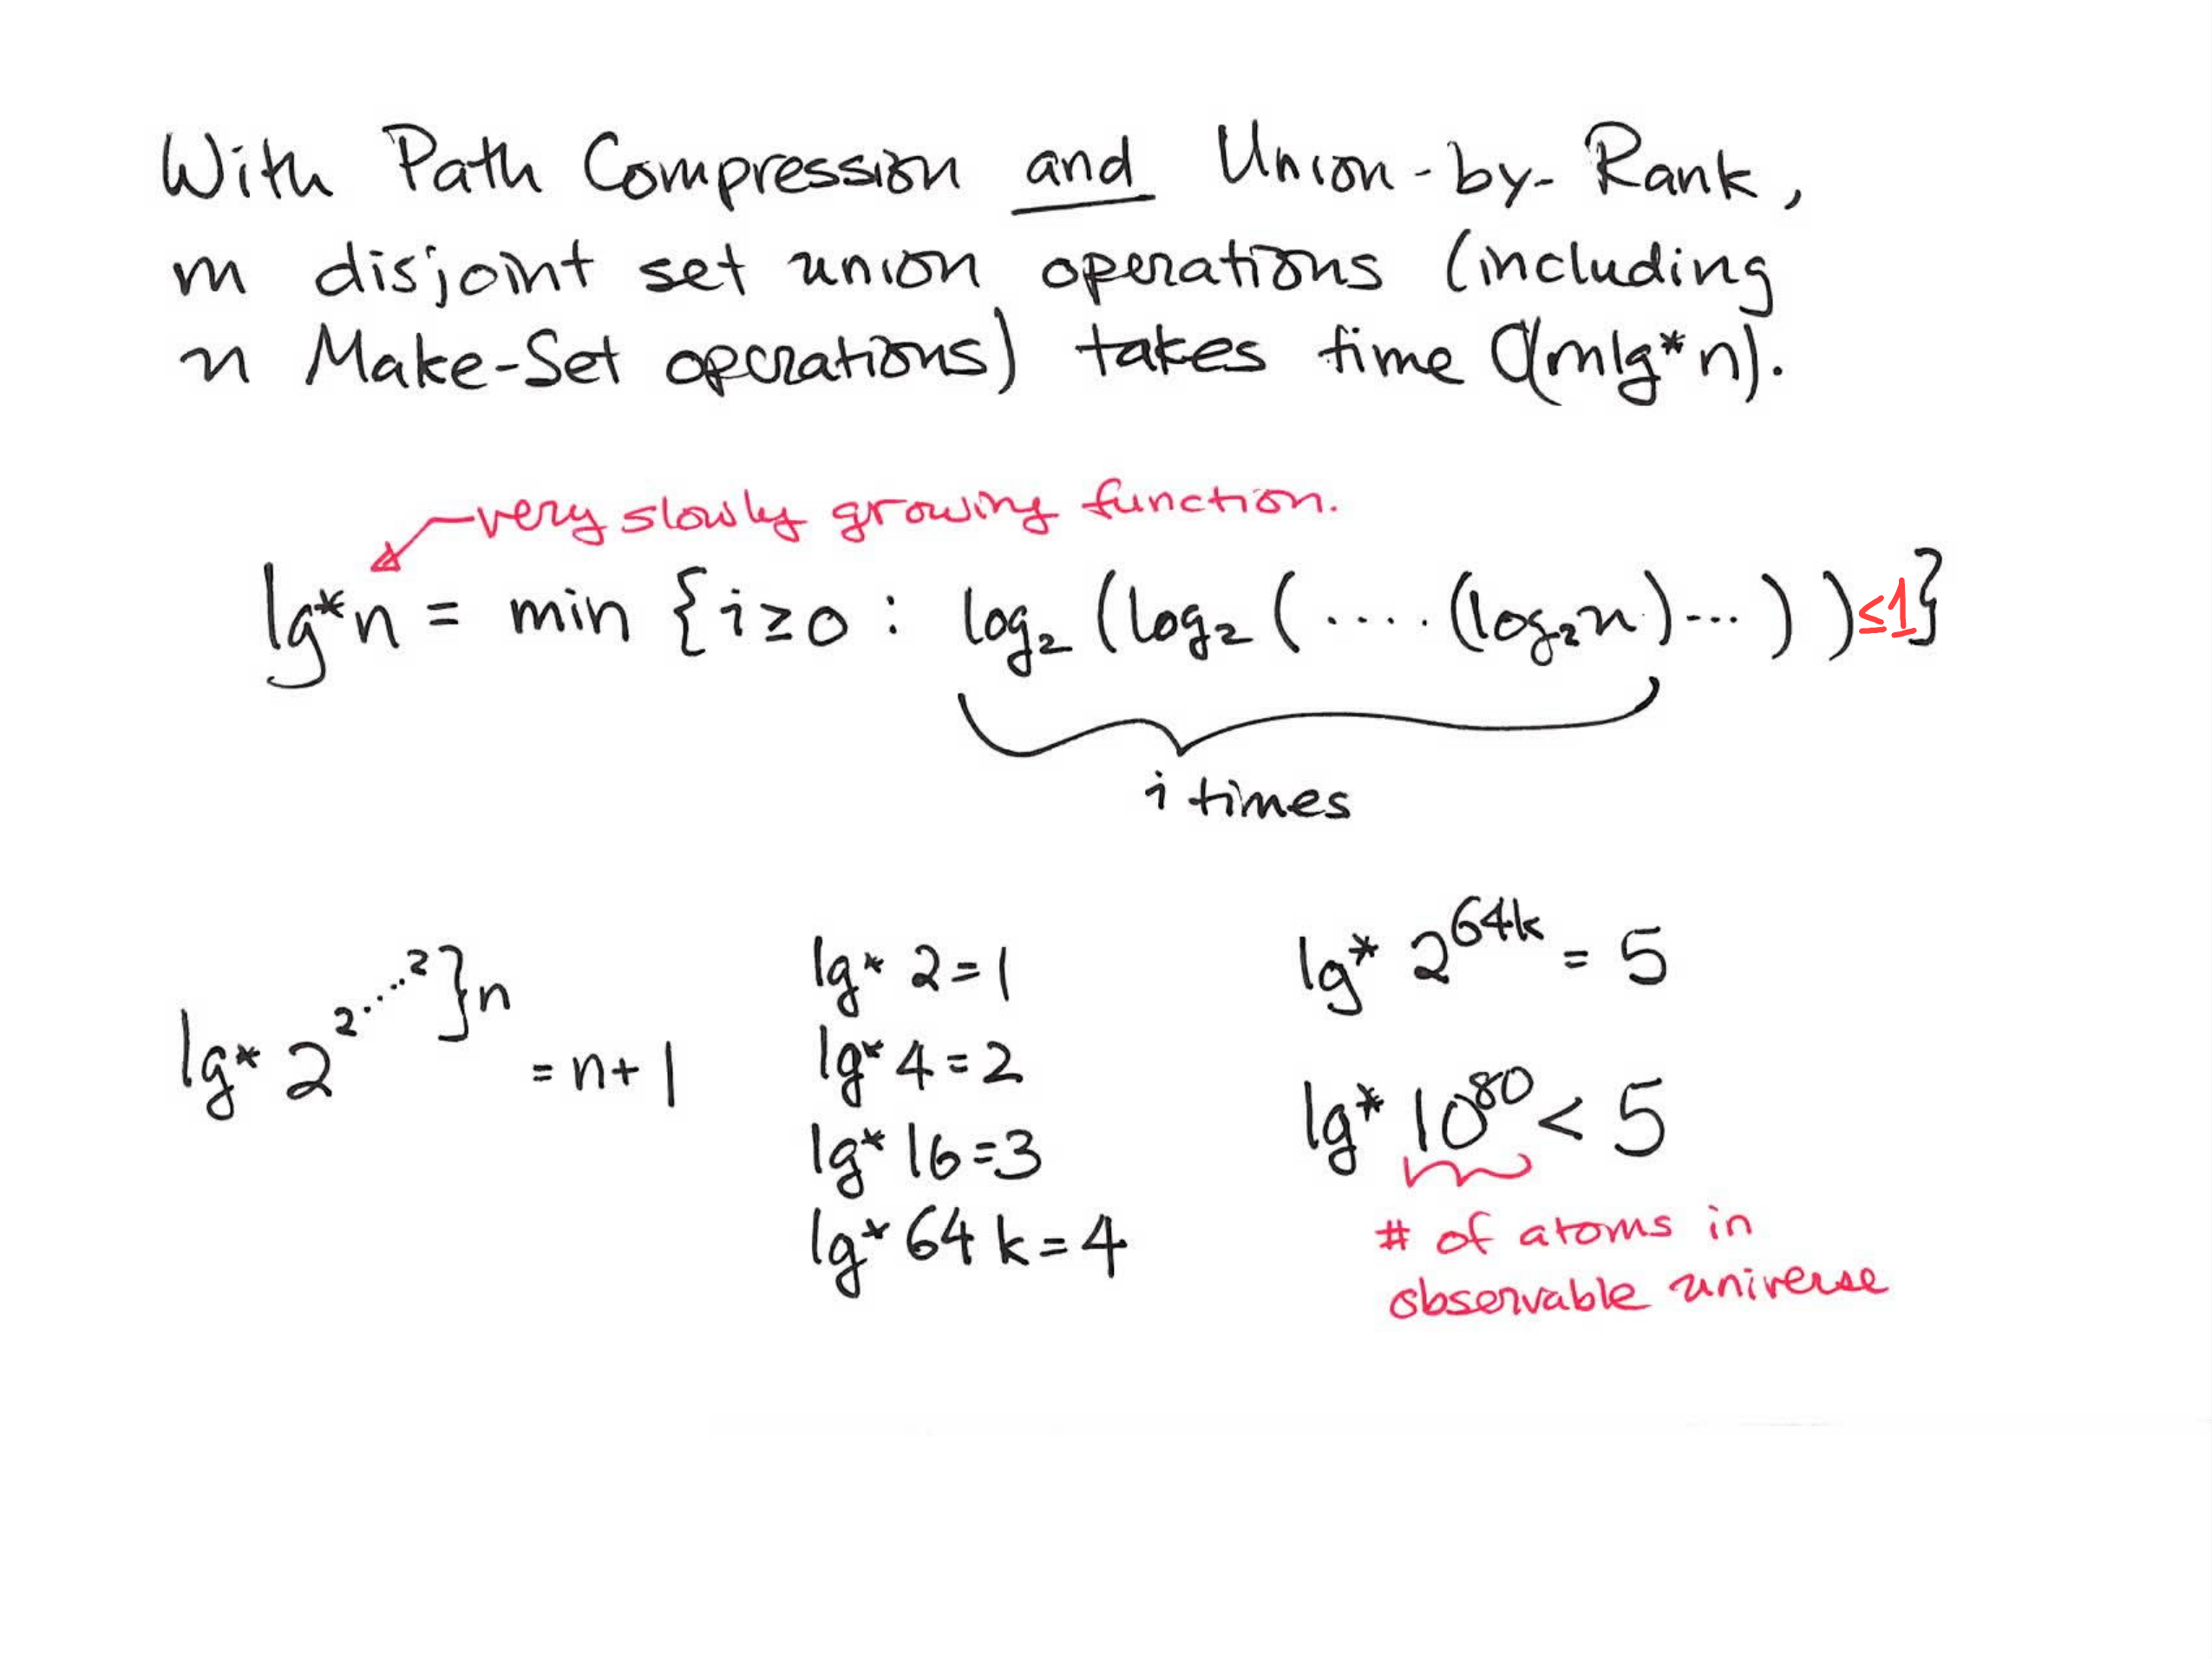 With Path Compression and Union-by-Rank,
m disjoint set union operations (including
n Make-Set operations) takes time O(mlg*n).
very slowly growing function.
lg*n = min {i≥0 : log₂ (log₂ (.... (log₂n)...) ) ≤1}
i times
lg* 2^2^....^2 }n = n+1
lg* 2=1
lg* 4=2
lg* 16=3
lg* 64k=4
lg* 2^64k = 5
lg* 10^80 < 5
# of atoms in
observable universe